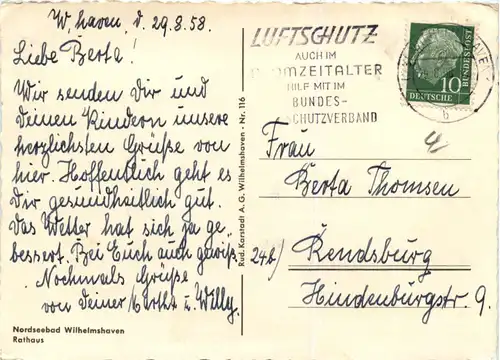 W'haven, d. 29.8.58.
Liebe Berta!
Wir senden Dir und
Deinen Kindern unsere
herzlichsten Grüße von
hier. Hoffentlich geht es
Dir gesundheitlich gut.
Das Wetter hat sich ja ge-
bessert. Bei Euch auch gewiß.
Nochmals Grüße
von Deiner Marthe u. Willy.
Nordseebad Wilhelmshaven
Rathaus
Rud. Karstadt A. G. Wilhelmshaven · Nr. 116
LUFTSCHUTZ
AUCH IM
ZEITALTER
HILF MIT IM
BUNDES-
SCHUTZVERBAND
10
DEUTSCHE
BUNDESPOST
b
Frau
Berta Thomsen
24b) Rendsburg
Hindenburgstr. 9.